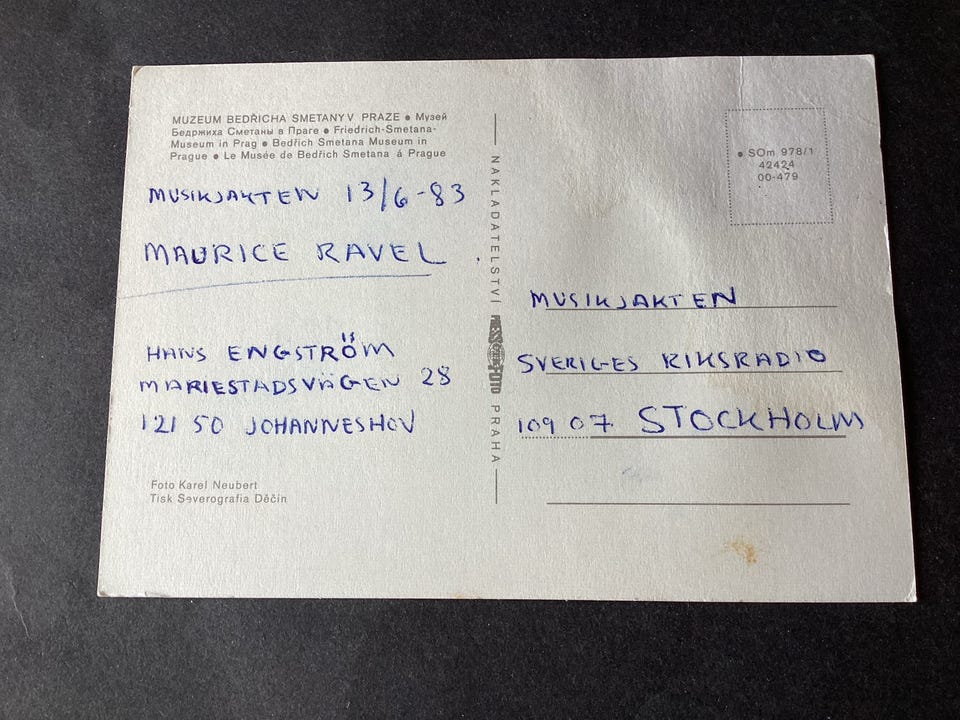 MUZEUM BEDŘICHA SMETANY V PRAZE ● Музей
Бедржиха Сметаны в Праге ● Friedrich-Smetana-
Museum in Prag ● Bedřich Smetana Museum in
Prague ● Le Musée de Bedřich Smetana á Prague
MUSIKJAKTEN 13/6-83
MAURICE RAVEL.
HANS ENGSTRÖM
MARIESTADSVÄGEN 28
121 50 JOHANNESHOV
Foto Karel Neubert
Tisk Severografia Děčín
NAKLADATELSTVÍ PRAHA
● SOm 978/1
42424
00-479
MUSIKJAKTEN
SVERIGES RIKSRADIO
109 07 STOCKHOLM